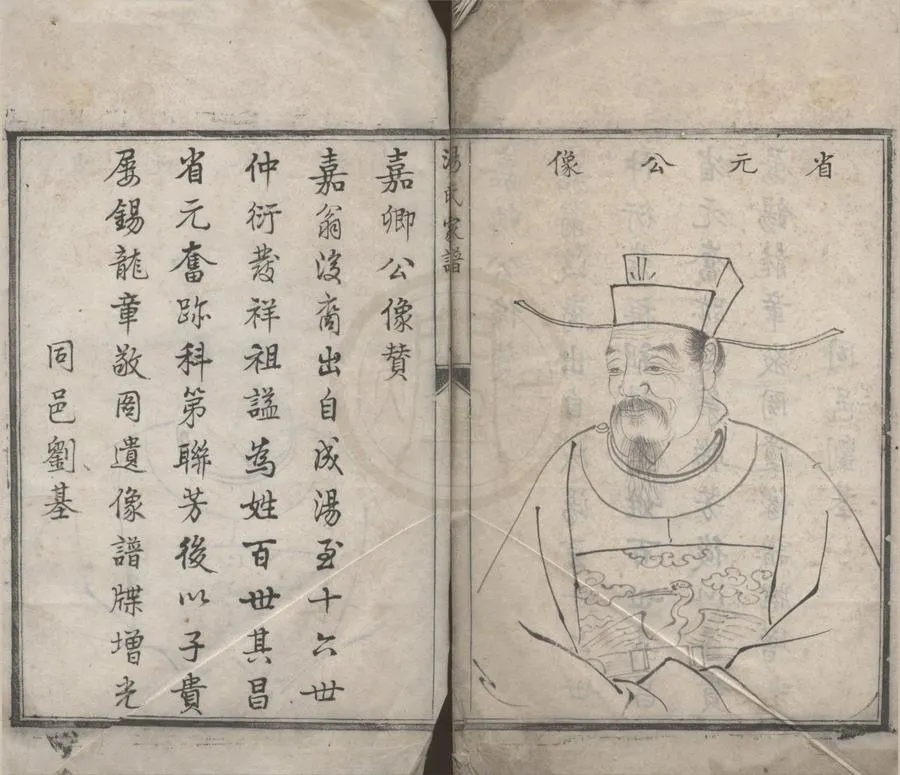 省元公像
湯氏家譜
嘉卿公像賛
嘉翁後裔出自成湯至十六世
仲衍發祥祖諡為姓百世其昌
省元奮跡科第聯芳後以子貴
屡錫龍章敬圖遺像譜牒增光
同邑劉基